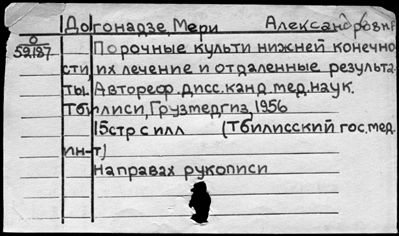 Догонадзе, Мери Александровна
0
59187
Порочные культи нижней конечно
сти, их лечение и отдаленные результа-
ты. Автореф. дисс. канд. мед. наук.
Тбилиси, Грузмедгиз, 1956
15 стр с илл (Тбилисский гос. мед.
ин-т)
На правах рукописи